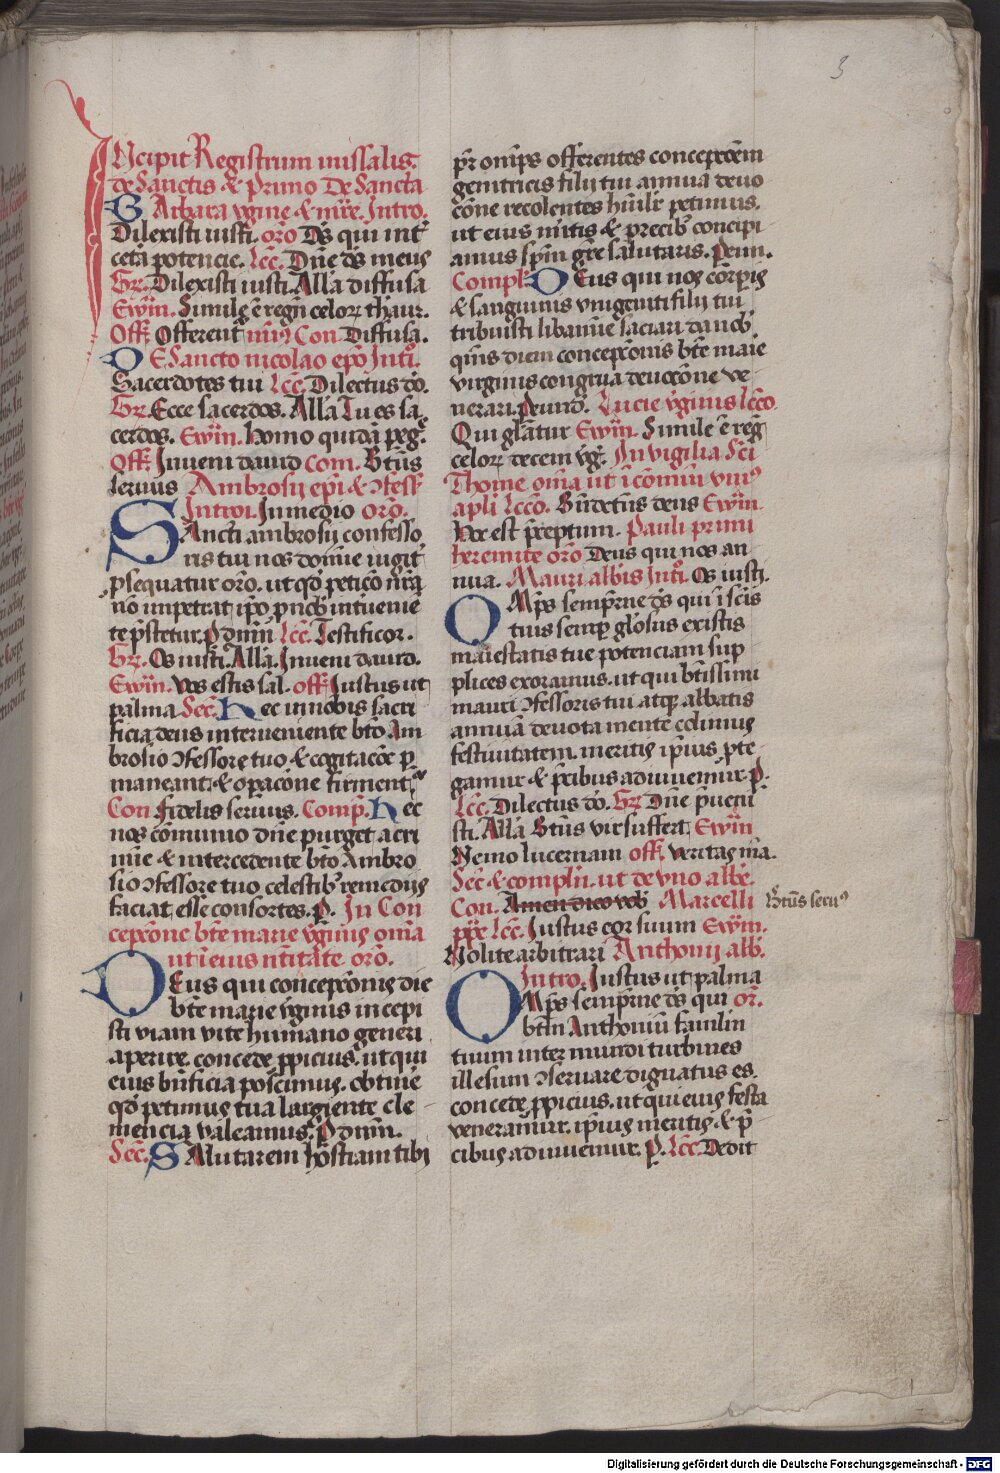 3
INcipit Registrum missalis
de Sanctis & primo De Sancta
BArbara vgine & mr̄e. Intro.
Dilexisti iusti. orō Dš qui int̄
cetā potencie. Lcc̄. Dn̄e dš meus
Gr̄. Dilexisti iusti. Allā diffusa
Ewn̄. Simile ē regn̄ celorꝝ thaur.
Off̄. Offerent̄ mīꝰ Con Diffusa.
DE Sancto nicolao ep̄o Intꝰ.
Sacerdotes tui Lcc̄. Dilectus dō.
Gr̄. Ecce sacerdos. Allā Tu es sa
cerdos. Ewn̄. Homo quidā peg̃.
Off̄. Inueni dauid Com. Btūs
seruus Ambrosij epī & ꝯfess̄
Introi. In medio orō.
SAncti ambrosij confesso
ris tui nos domīe iugit̄
ꝓsequatur orō. ut qd̄ peticō nrā
nō impetrat ip̄o ꝓ nob̄ intueniē
te p̄stetur. P dnm̄ Lcc̄. Testificor.
Gr̄. Os iusti. Allā. Inueni dauid.
Ewn̄. Vos estis sal. off̄ Iustus ut
palma Secr̄. Hec in nobis sacri
ficia deus interueniente btō Am
brosio ꝯfessore tuo & cogitacōe ꝑ
maneant & opacōne firment̄
Con fidelis seruus. Comp̄. Hec
nos cōmunio dn̄e purget a cri
mīe & intercedente btō Ambro
sio ꝯfessore tuo celestibꝰ remedijs
faciat esse consortes. p. In Con
cepcōne btē marie v̄ginis om̄ia
ut ī eius nītate orō.
DEus qui concepcōnis die
btē marie v̄ginis incepi
sti viam vite humano generi
aperire. concede ꝓpicius. ut qui
eius bn̄ficia poscimus. obtinē
qd̄ petimus tua largiente cle
mencia valeamus. P dnm̄.
Secr̄. SAlutarem hostiam tibi
pr̄ om̄ps offerentes concepcōem
genitricis filij tui annua deuo
cōne recolentes hūilr̄ petimus.
ut eius mītis & precibꝰ concipi
amus spm̄ gr̄e salutaris. Peun.
Compl̄ DEus qui nos corpis
& sanguinis vnigeniti filij tui
tribuisti libamīe saciari da nob̄
qm̄s diem concepcōnis btē maīe
virginis congrua deuocōne ve
nerari. Peund. Lucie v̄ginis lcc̄o.
Qui gl̄atur Ewn̄. Simile ē reg̃
celorꝝ decem vg̃. In vigilia Scī
Thome om̄ia ut ī com̄uni vniꝰ
apl̄i lcc̄o. Bn̄dictus deus Ewn̄.
Hoc est p̄ceptum. Pauli primi
heremite orō Deus qui nos an
nua. Mauri abbis Intꝰ. Os iusti.
OMp̄s sempr̄ne dš qui ī scīs
tuis semꝑ glōsus existis
maiestatis tue potenciam sup
plices exoramus. ut qui btīssimi
mauri ꝯfessoris tui atqꝫ abbatis
annuā deuota mente colimus
festiuitatem. meritis ip̄ius ꝓte
gamur & p̄cibus adiuuemur. P.
Lcc̄. Dilectus dō. Gr̄ Dn̄e p̄ueni
sti. Allā Btūs vir suffert. Ewn̄
Nemo lucernam off̄. veritas mā.
Secr̄ & compln̄. ut de vno abbe.
Con. Amen dico vob̄ Marcelli
ppe Lcc̄. Iustus cor suum Ewn̄.
Nolite arbitrari Anthonij abb̄.
Intro. Iustus ut palma
OMp̄s sempr̄ne dš qui or̄.
btm̄ Anthoniū famlm̄
tuum inter mundi turbines
illesum ꝯseruare dignatus es.
concede ꝓpicius. ut qui eius festa
veneramur. ip̄ius meritis & p̄
cibus adiuuemur. P. Lcc̄. Dedit
Btūs seruꝰ
Digitalisierung gefördert durch die Deutsche Forschungsgemeinschaft - DFG